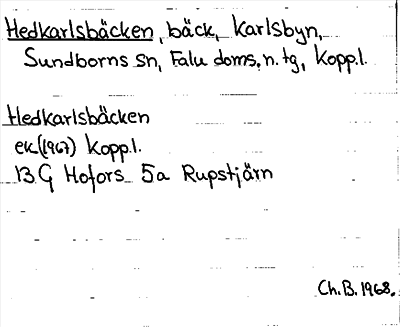 Hedkarlsbäcken, bäck, Karlsbyn,
Sundborns sn, Falu doms. n. tg, Kopp.l.
Hedkarlsbäcken
ek(1967) Kopp.l.
13 G Hofors 5a Rupstjärn
Ch.B. 1968.